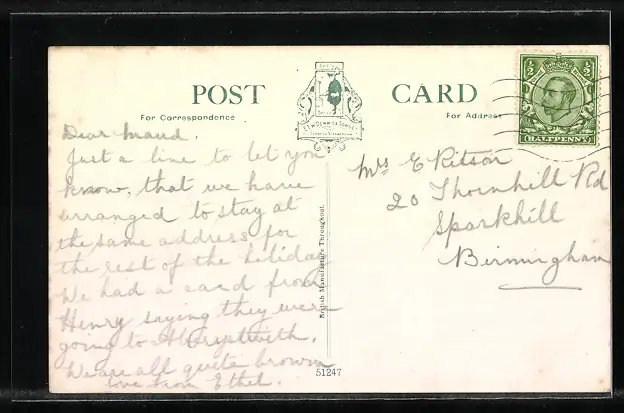 POST CARD
For Correspondence
For Address
½ ½
HALFPENNY
Dear Maud.
Just a line to let you
know, that we have
arranged to stay at
the same address for
the rest of the holiday
We had a card from
Henry saying they were
going to Aberystwith.
We are all quite brown
love from Ethel.
British Manufacture Throughout.
51247
Mrs E Ritson
20 Thornhill Rd
Sparkhill
Birmingham